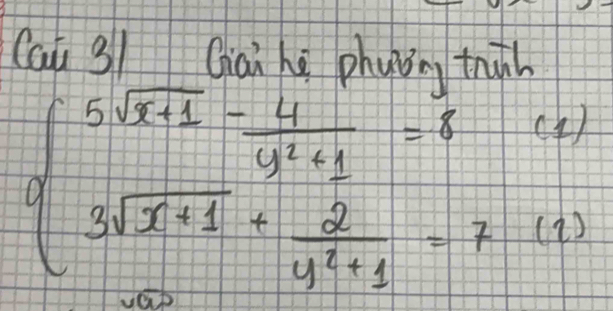 Câu 3/ Giải hệ phương trình
5√(x+1) - 4/(y²+1) = 8 (1)
3√(x+1) + 2/(y²+1) = 7 (2)